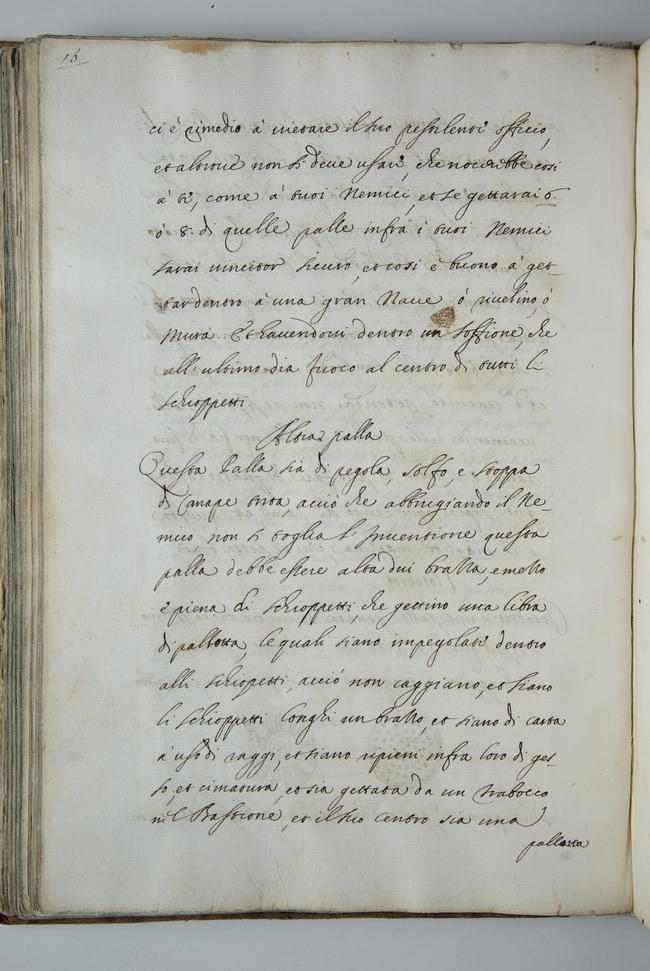 16
ci è rimedio à vietare il suo pestilente officio,
et altrove non si deve usare, che nocerebbe così
à tè, come à tuoi Nemici, et se gettarai 6.
ó 8. di quelle palle infrà i tuoi Nemici
sarai vincitor sicuro, et così è buono à get-
tar dentro à una gran Nave ó rivelino, ó
Mura. Et havendovi dentro un soffione, che
all'ultimo dia fuoco al centro di tutti li
schioppetti
Altra palla
Questa Palla sia di pegola, solfo, e stoppa
di Canape trita, acciò che abbrugiando il Ne-
mico, non ti toglia l'Inventione questa
palla debbe essere alta dui bratta, e metto
è piena di schioppetti, che gettino una libra
di pallotta, le quali siano impegolate dentro
alli schiopetti, acciò non caggiano, et siano
li schioppetti longhi un bratto, et siano di carta
à uso di raggi, et siano ripieni infra loro di ges-
so, et cimatura, et sia gettata da un trabocco
nil Bastione, et il suo centro sia una
pallotta